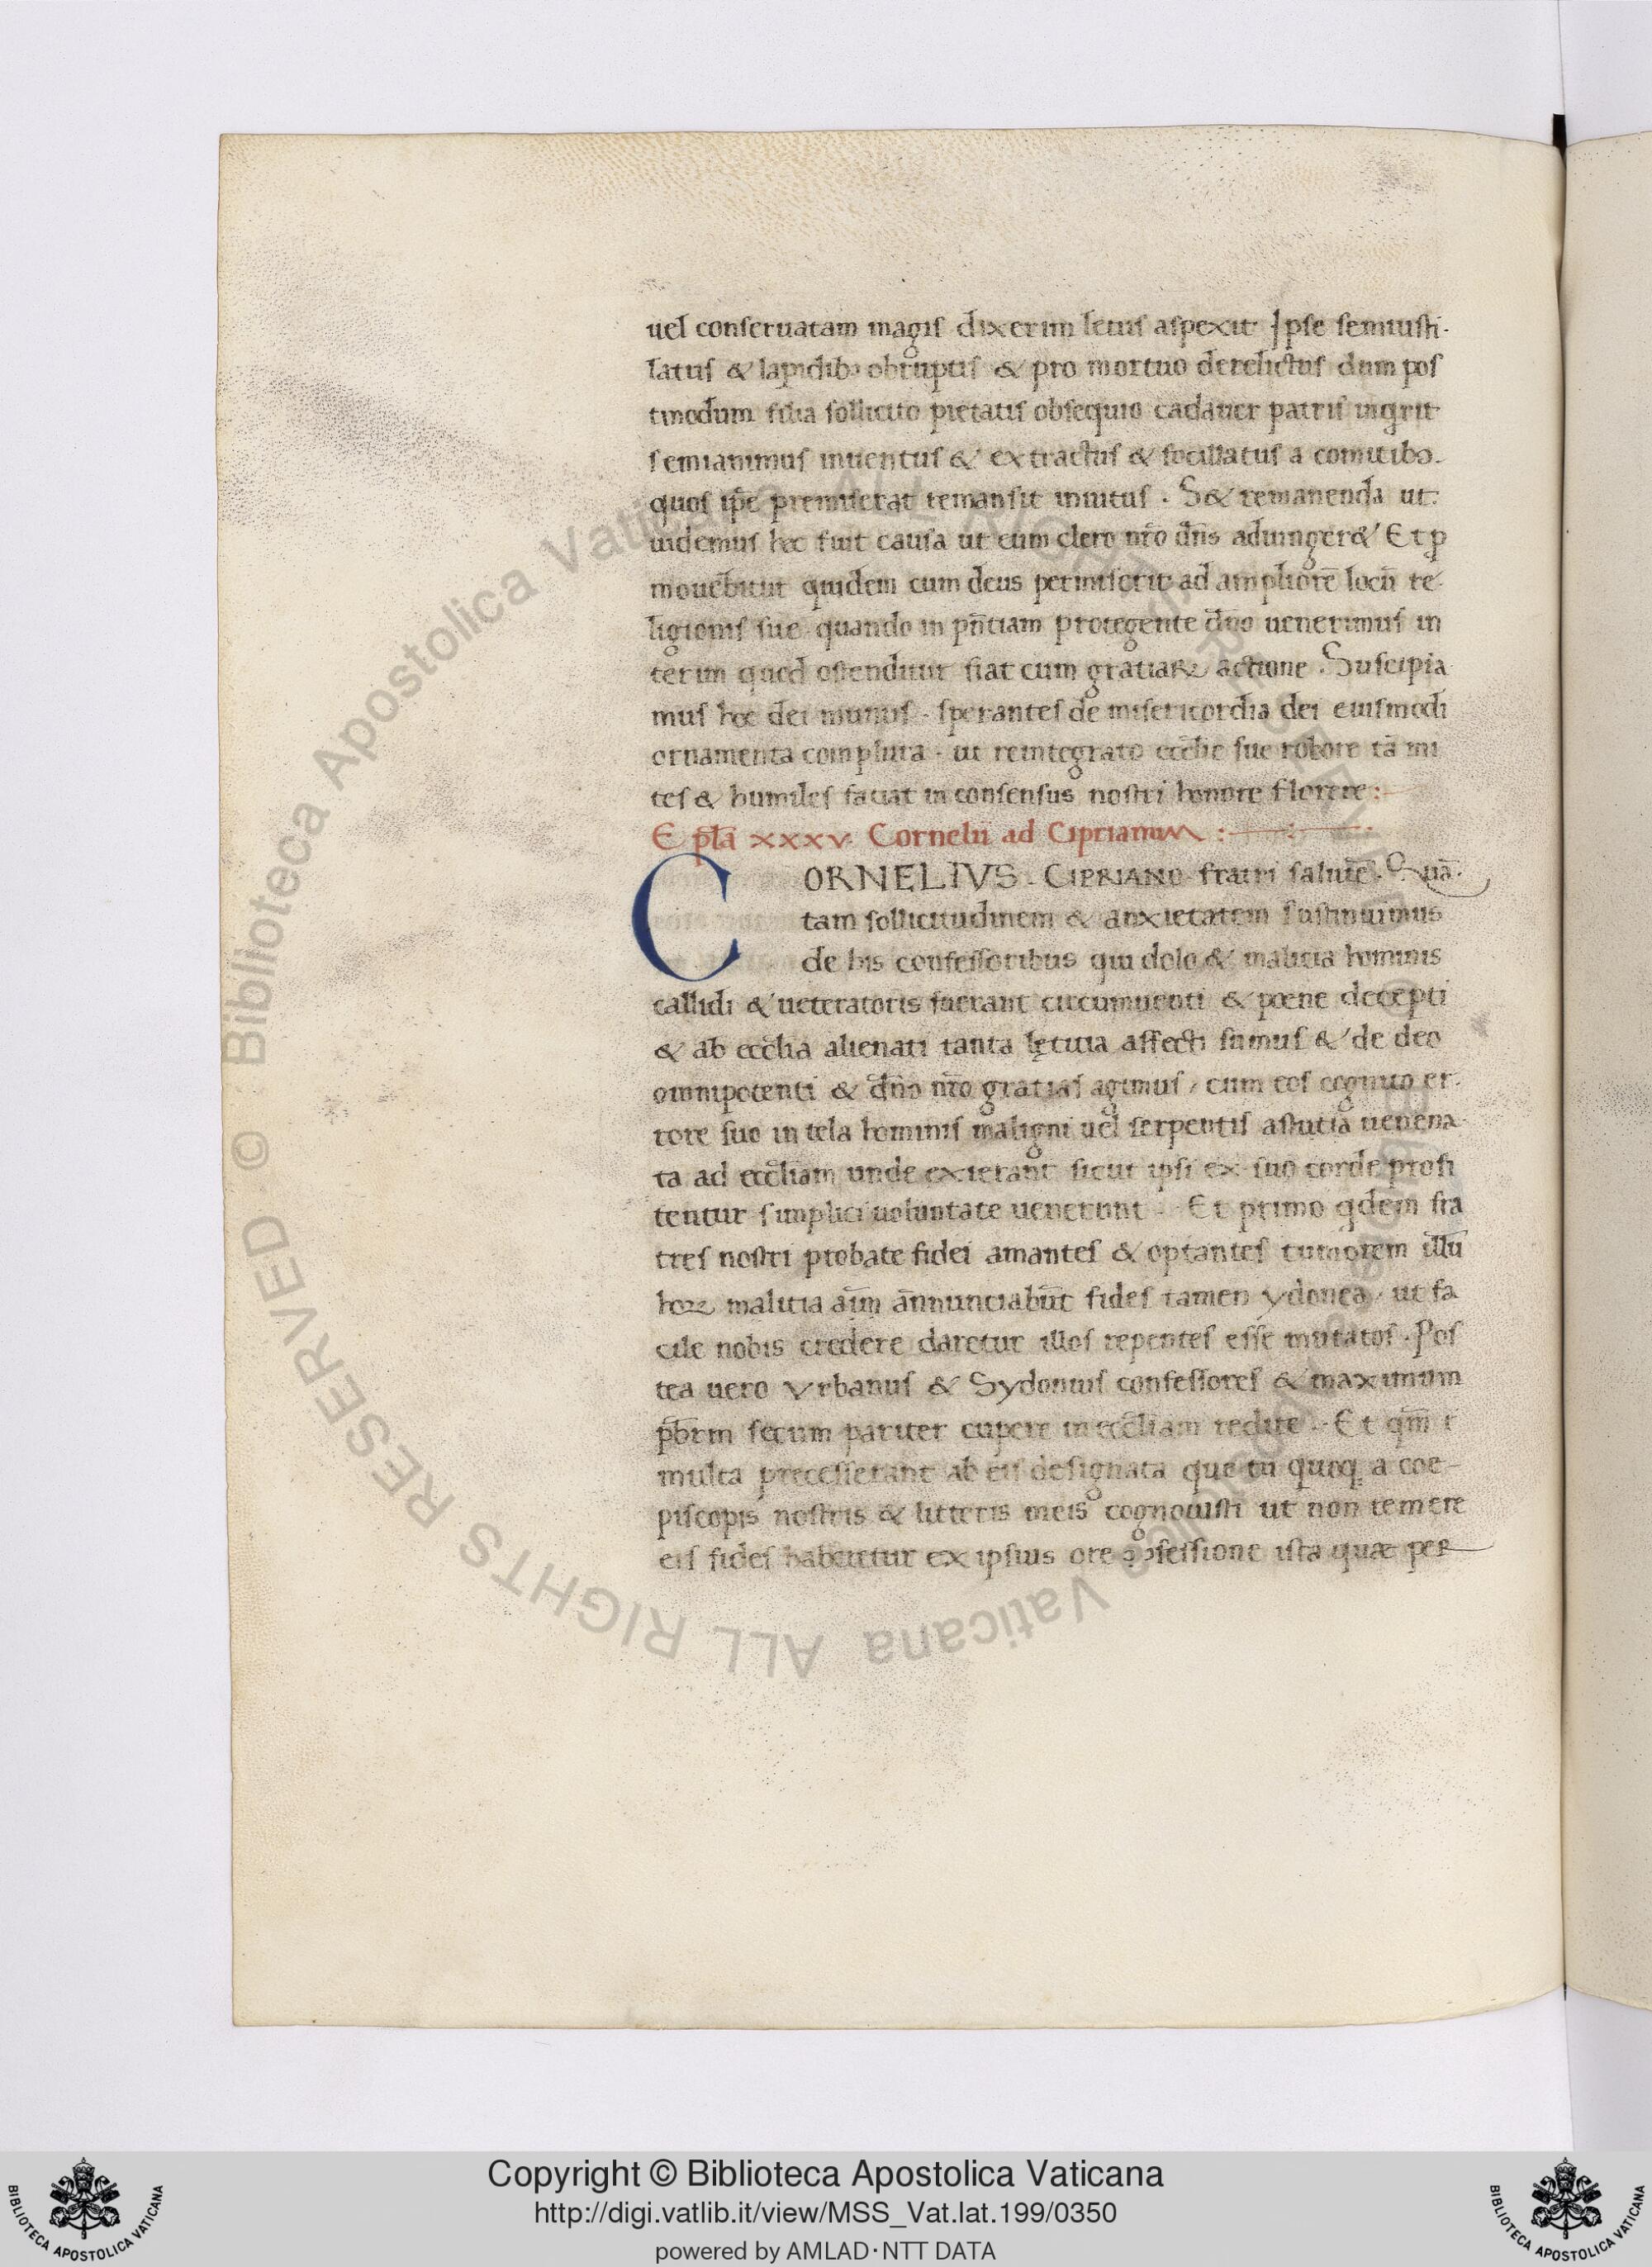 uel conseruatam magis dixerim letus aspexit Ipse semiusti-
latus & lapidibꝫ obruptis & pro mortuo derelictus dum pos
tmodum filia sollicito pietatis obsequio cadauer patris inqrit
semianimus inuentus & extractus & focillatus a comitibꝫ.
quos ip̄e premiserat remansit inuitus. S& remanenda ut
uidemus hec fuit causa ut eum clero nr̄o dn̄s adiunger& Et ꝓ
mouebitur quidem cum deus permiserit ad ampliorē locū re-
ligionis sue. quando in pn̄tiam protegente dn̄o uenerimus in
terim quod ostenditur fiat cum gratiaꝝ actione. Suscipia
mus hoc dei munus. sperantes de misericordia dei eiusmodi
ornamenta complura. ut reintegrato ecc̄lie sue robore tā mi
tes & humiles faciat in consensus nostri honore florere:
Ep̄la xxxv. Cornelii ad Ciprianum:
CORNELIVS. CIPRIANO fratri salutē. Quā
tam sollicitudinem & anxietatem sustinuimus
de his confessoribus qui dolo & malicia hominis
callidi & ueteratoris fuerant circumuenti & pœne decepti
& ab ecc̄lia alienati tanta lętitia affecti sumus & de deo
omnipotenti & dn̄o nr̄o gratias agimus, cum eos cognito er-
rore suo in tela hominis maligni uel serpentis astutia uenena
ta ad ecc̄liam unde exierant sicut ipsi ex suo corde profi
tentur simplici uoluntate uenerunt. Et primo qdem fra
tres nostri probate fidei amantes & optantes tumorem illū
hoꝝ malicia aīm annunciabūt fides tamen ydonea, ut fa
cile nobis credere daretur illos repentes esse mutatos. Pos
tea uero Vrbanus & Sydonius confessores & maximum
pb̄rm secum pariter cupere in ecc̄liam redire. Et qm̄
multa precesserant ab eis designata que tu quoq a coe-
piscopis nostris & litteris meis cognouisti ut non temere
eis fides haberetur ex ipsius ore ꝯfessione ista quæ per
© Biblioteca Apostolica Vaticana ALL RIGHTS RESERVED
© Biblioteca Apostolica Vaticana ALL RIGHTS RESERVED
Copyright © Biblioteca Apostolica Vaticana
http://digi.vatlib.it/view/MSS_Vat.lat.199/0350
powered by AMLAD·NTT DATA
BIBLIOTECA APOSTOLICA VATICANA
BIBLIOTECA APOSTOLICA VATICANA